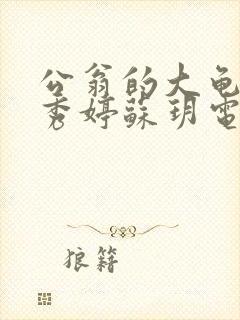 公翁的大龟
秀婷蘇玥電
狼籍